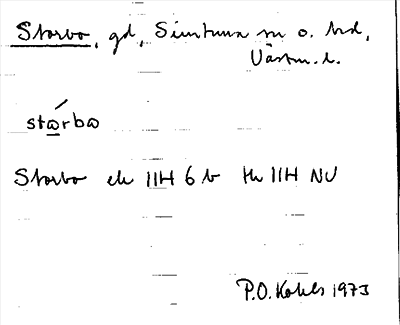 Storbo, gd, Simtuna sn o. hd,
Västm. l.
stωrbω
Storbo ek 11H 6 b tk 11H NV
P.O. Kohls 1973